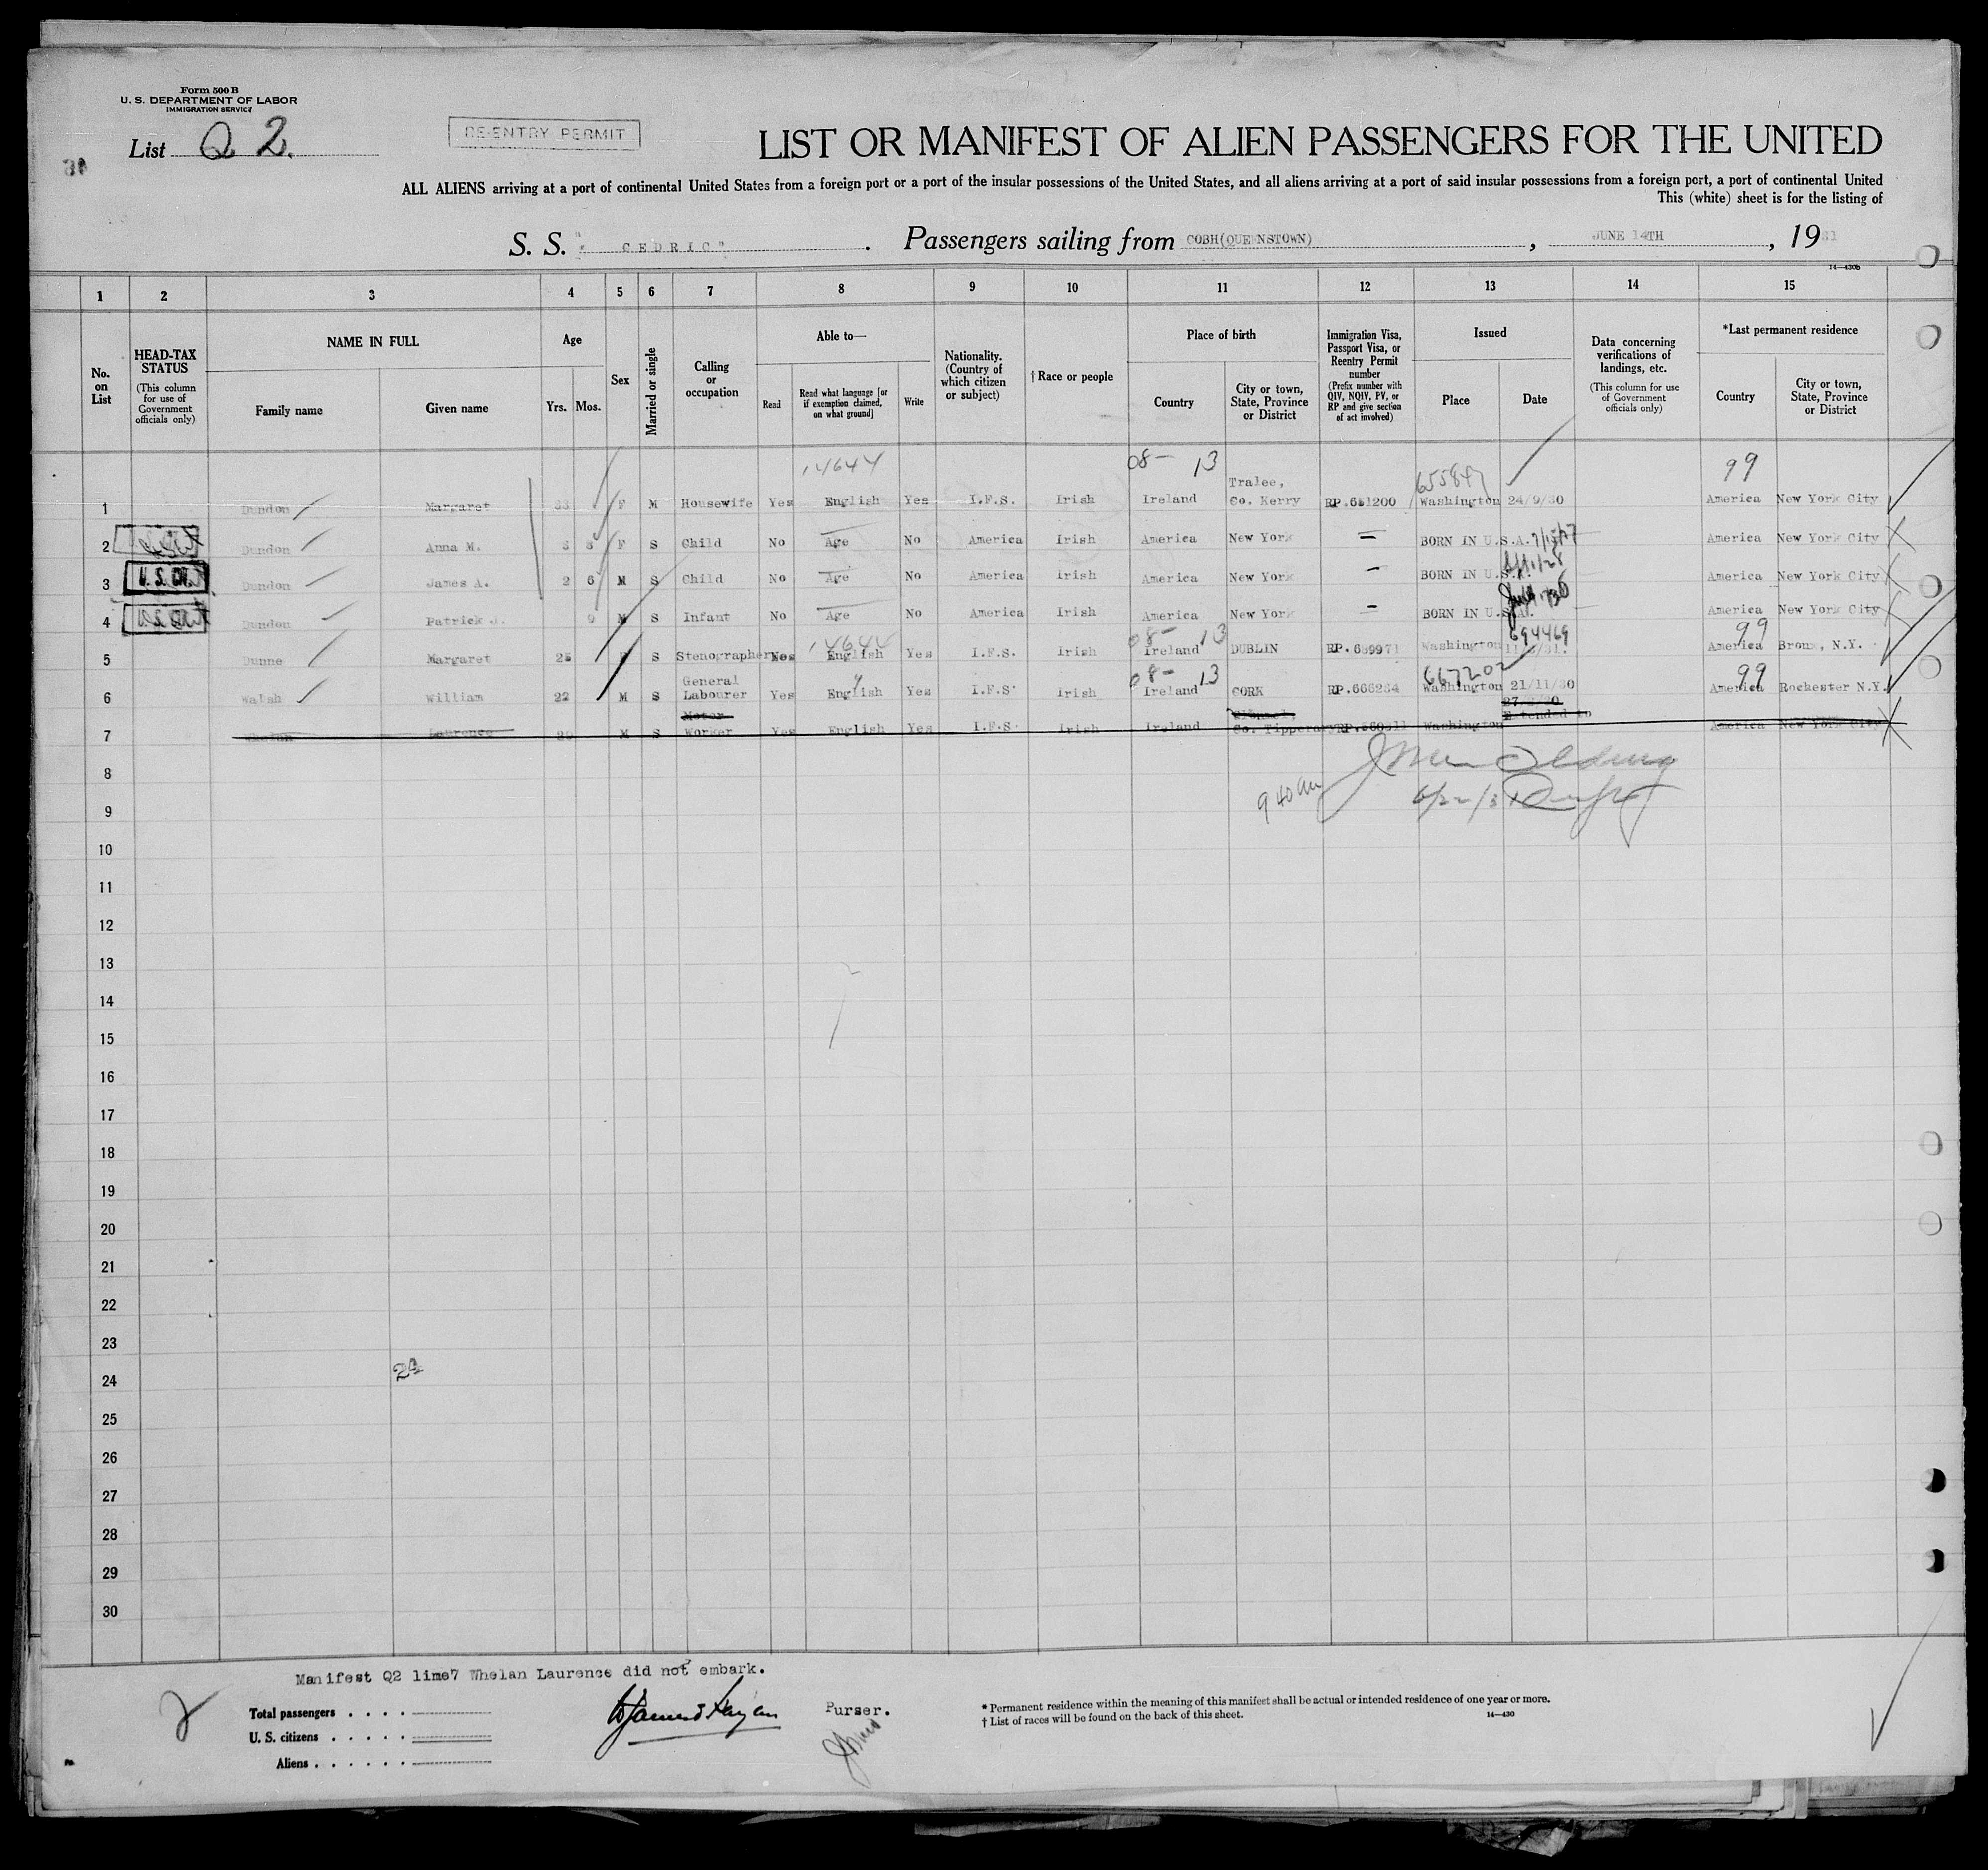 Form 500 B
U. S. DEPARTMENT OF LABOR
IMMIGRATION SERVICE
List Q 2.
RE-ENTRY PERMIT
LIST OR MANIFEST OF ALIEN PASSENGERS FOR THE UNITED
ALL ALIENS arriving at a port of continental United States from a foreign port or a port of the insular possessions of the United States, and all aliens arriving at a port of said insular possessions from a foreign port, a port of continental United
This (white) sheet is for the listing of
S. S. "CEDRIC". Passengers sailing from COBH(QUEENSTOWN), JUNE 14TH, 1931
14—430b
1 2 3 4 5 6 7 8 9 10 11 12 13 14 15
No. on List
HEAD-TAX STATUS
(This column for use of Government officials only)
NAME IN FULL
Family name Given name
Age
Yrs. Mos.
Sex
Married or single
Calling or occupation
Able to—
Read
Read what language [or if exemption claimed, on what ground]
Write
Nationality. (Country of which citizen or subject)
† Race or people
Place of birth
Country
City or town, State, Province or District
Immigration Visa, Passport Visa, or Reentry Permit number
(Prefix number with QIV, NQIV, PV, or RP and give section of act involved)
Issued
Place Date
Data concerning verifications of landings, etc.
(This column for use of Government officials only)
*Last permanent residence
Country
City or town, State, Province or District
14644 08— 13 655847 99
1 Dundon Margaret 33 F M Housewife Yes English Yes I.F.S. Irish Ireland Tralee, Co. Kerry RP.651200 Washington 24/9/30 America New York City
2 Dundon Anna M. F S Child No Age No America Irish America New York — BORN IN U.S.A. America New York City
3 U.S. Dundon James A. 2 6 M S Child No Age No America Irish America New York — BORN IN U.S.A. America New York City
4 Dundon Patrick J. M S Infant No Age No America Irish America New York — BORN IN U.S.A. America New York City
14644 08— 13 694469 99
5 Dunne Margaret 25 F S Stenographer Yes English Yes I.F.S. Irish Ireland DUBLIN RP.689971 Washington America Bronx, N.Y.
08— 13 667202 99
6 Walsh William 22 M S General Labourer Yes English Yes I.F.S. Irish Ireland CORK RP.666284 Washington 21/11/30 America Rochester N.Y.
7 Whelan Laurence M S Motor Worker Yes English Yes I.F.S. Irish Ireland Clonmel, Co. Tipperary Washington Extended to America New York City
8
9 40 am
9
10
11
12
13
14
15
16
17
18
19
20
21
22
23
24
25
26
27
28
29
30
Manifest Q2 lime7 Whelan Laurence did not embark.
Total passengers . . . .
U. S. citizens . . . . .
Aliens . . . . . .
Purser.
* Permanent residence within the meaning of this manifest shall be actual or intended residence of one year or more.
† List of races will be found on the back of this sheet.
14—430